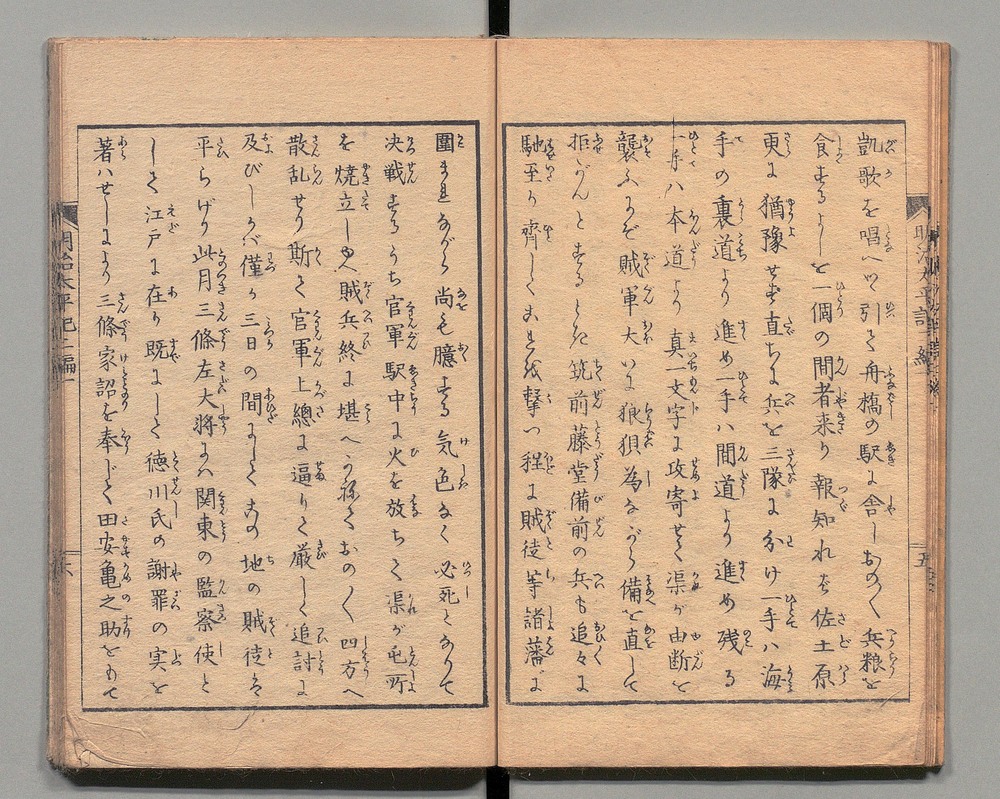 凱歌を唱へつゝ引て舟橋の駅に舎しおの〱兵粮を
食するよしを一個の間者来り報知れば佐土原
更に猶豫せず直ちに兵を三隊に分け一手ハ海
手の裏道より進め一手ハ間道より進め残る
一手ハ本道より真一文字に攻寄せて渠が由断を
襲ふにぞ賊軍大いに狼狽為ながら備を直して
拒がんとするとき筑前藤堂備前の兵も追々に
馳至り齊しくこれを撃つ程に賊徒等諸藩に
圍まれながら尚も臆する気色なく必死となりて
決戦するうち官軍駅中に火を放ちて渠が屯所
を焼立しゆへ賊兵終に堪へかねておの〱四方へ
散乱せり斯て官軍上總に逼りて厳しく追討に
及びしかバ僅か三日の間にしてその地の賊徒を
平らげり此月三條左大将にハ関東の監察使と
して江戸に在り既にして徳川氏の謝罪の実を
著ハせしにより三條家詔を奉じて田安亀之助をもて
明治太平記二編一
五
六